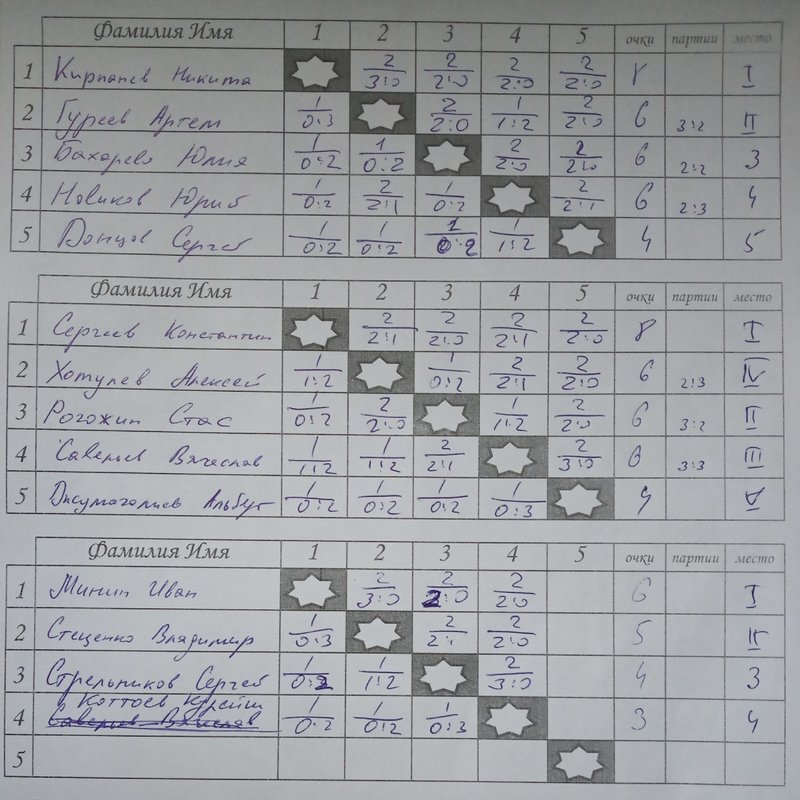 Фамилия Имя 1 2 3 4 5 очки партии место
1 Кирпанев Никита 2 3:0 2 2:0 2 2:0 2 2:0 8 I
2 Гуреев Артем 1 0:3 2 2:0 1 1:2 2 2:0 6 3:2 II
3 Бахарева Юлия 1 0:2 1 0:2 2 2:0 2 2:0 6 2:2 3
4 Новиков Юрий 1 0:2 2 2:1 1 0:2 2 2:1 6 2:3 4
5 Донцов Сергей 1 0:2 1 0:2 1 0:2 1 1:2 4 5
Фамилия Имя 1 2 3 4 5 очки партии место
1 Сергеев Константин 2 2:1 2 2:0 2 2:1 2 2:0 8 I
2 Хотулев Алексей 1 1:2 1 0:2 2 2:1 2 2:0 6 2:3 IV
3 Рогожин Стас 1 0:2 2 2:0 1 1:2 2 2:0 6 3:2 II
4 Савельев Вячеслав 1 1:2 1 1:2 2 2:1 2 3:0 6 3:3 III
5 Джумагалиев Альберт 1 0:2 1 0:2 1 0:2 1 0:3 4 V
Фамилия Имя 1 2 3 4 5 очки партии место
1 Минин Иван 2 3:0 2 2:0 2 2:0 6 I
2 Стеценко Владимир 1 0:3 2 2:1 2 2:0 5 II
3 Стрельников Сергей 1 0:2 1 1:2 2 3:0 4 3
Коттоев Курейш
4 Савельев Вячеслав 1 0:2 1 0:2 1 0:3 3 4
5